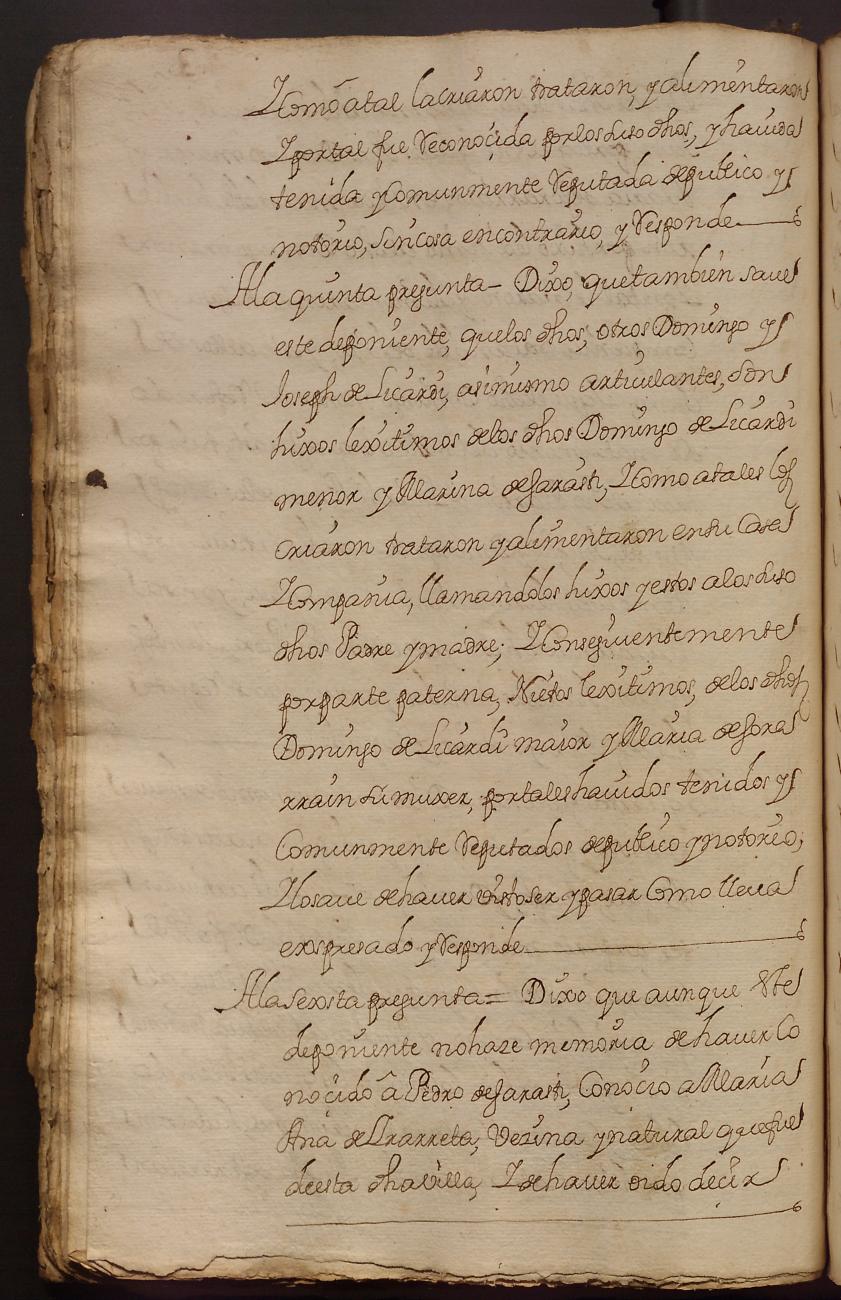 Y como â atal la criaron trataron, y alimentaron
Y por tal fue reconocida por los suso dhos, y havida
tenida y comunmente reputada de publico y
notorio, sin cosa en contrario, y responde
A la quinta pregunta - Dixo, que tambien save
este deponiente, que los dhos, otros Domingo y
Joseph de Licardi, asimismo articulantes, son
hixos lexitimos de los dhos Domingo de Licardi
menor y Marina de Garasti, Y como a tales los
criaron trataron y alimentaron en su casa
Y compania, llamandolos hixos y estos a los suso
dhos Padre y madre; Y consequientemente
por parte paterna, Nietos lexitimos, de los dhos
Domingo de Licardi maior y Maria de Goras
rrain su muxer, por tales havidos tenidos y
comunmente reputados de publico y notorio;
Y lo save de haver visto ser y pasar como lleva
exspresado y responde
A la sexsta pregunta = Dixo que aunque este
deponiente no haze memoria de haver co
nocido â Pedro de Garasti, conocio a Maria
Ana de Yrarreta, Vezina y natural que fue
de esta dha villa, Y de haver oido decir